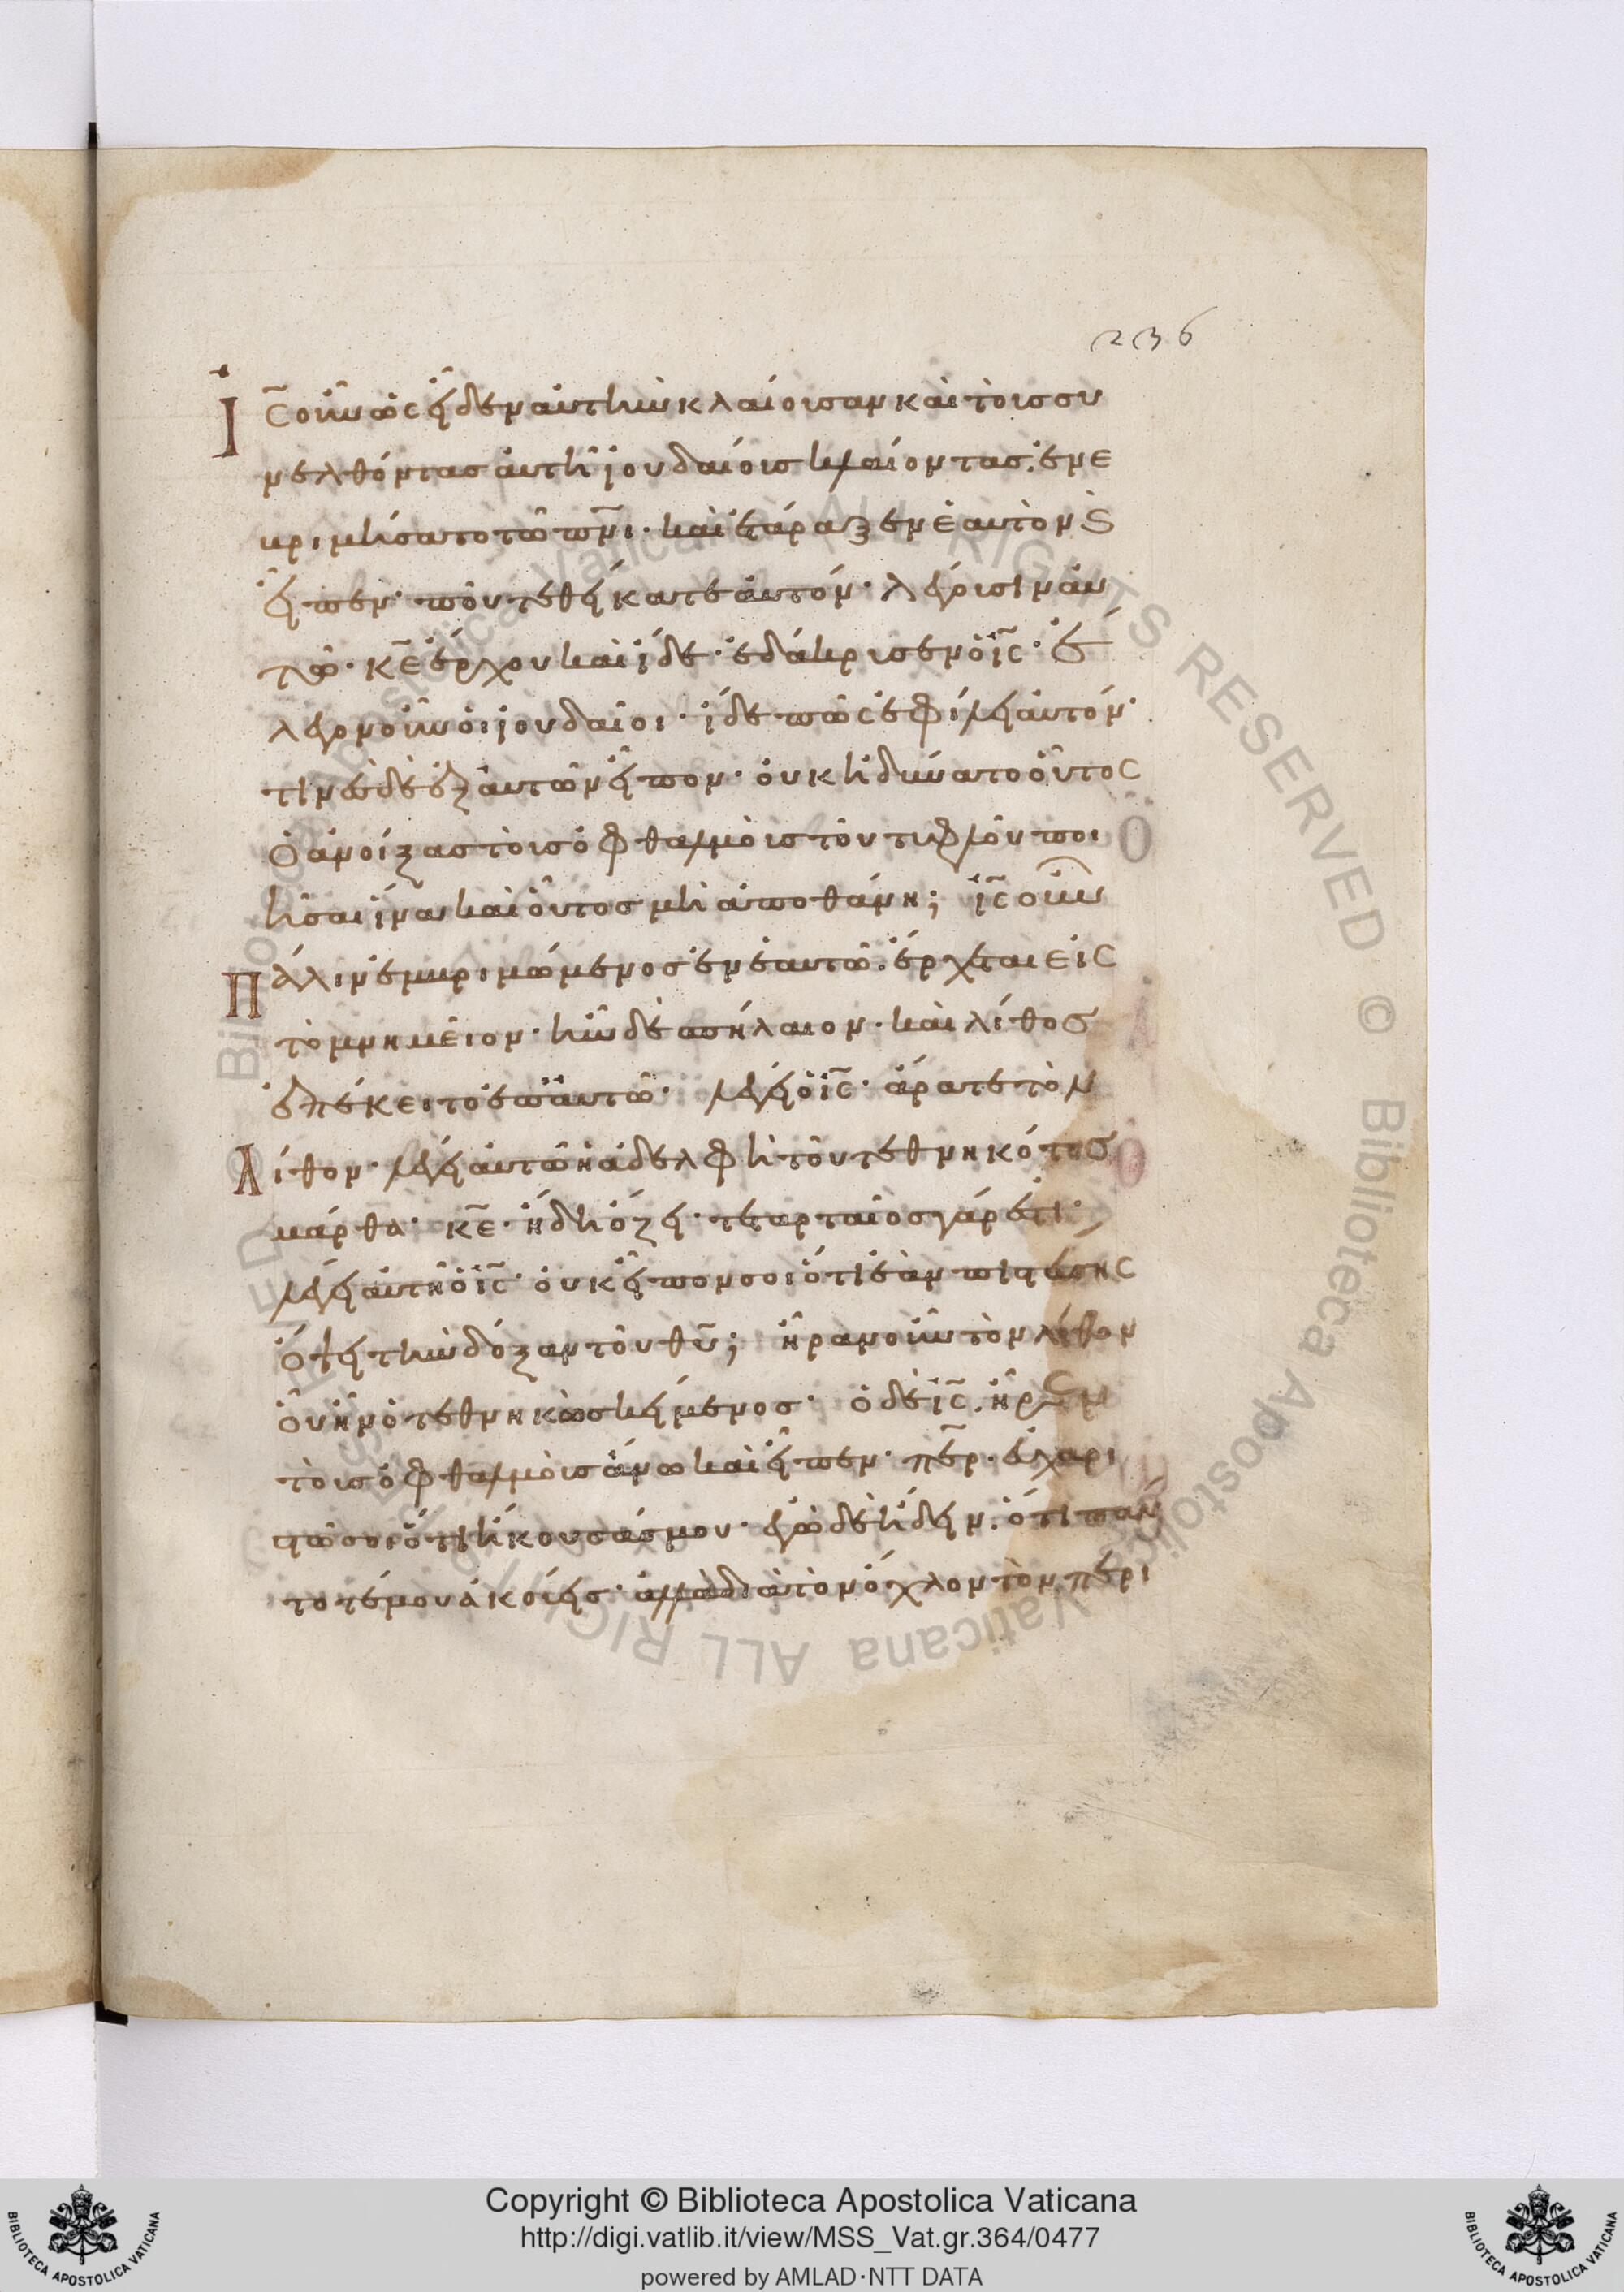 236
Ἰς οὖν ὡς εἶδεν αὐτὴν κλαίουσαν καὶ τοὺς συ
νελθόντας αὐτῆ ἰουδαίους κλαίοντας. ἐνε
βριμήσατο τῶ πνι. καὶ ἐτάραξεν ἑαυτὸν κ
εἶπεν. ποῦ τεθείκατε αὐτόν. λέγουσιν αὐ
τῶ. κε ἔρχου καὶ ἴδε. ἐδάκρυσεν ὁ ις. ἔ
λεγον οὖν οἱ ἰουδαῖοι. ἴδε πῶς ἐφίλει αὐτόν.
τινὲς δὲ ἐξ αὐτῶν εἶπον. οὐκ ἠδύνατο οὗτος
ὁ ἀνοίξας τοὺς ὀφθαλμοὺς τοῦ τυφλοῦ ποι
ῆσαι ἵνα καὶ οὗτος μὴ ἀποθάνη; ις οὖν
Πάλιν ἐμβριμώμενος ἐν ἑαυτῶ. ἔρχεται εἰς
τὸ μνημεῖον. ἦν δὲ σπήλαιον. καὶ λίθος
ἐπέκειτο ἐπ' αὐτῶ. λέγει ὁ ις. ἄρατε τὸν
Λίθον. λέγει αὐτῶ ἡ ἀδελφὴ τοῦ τεθνηκότος
μάρθα. κε. ἤδη ὄζει. τεταρταῖος γάρ ἐστι.
λέγει αὐτῆ ὁ ις. οὐκ εἶπόν σοι ὅτι ἐὰν πιστεύσης
ὄψει τὴν δόξαν τοῦ θυ; ἦραν οὖν τὸν λίθον
οὗ ἦν ὁ τεθνηκὼς κείμενος. ὁ δὲ ις. ἦρεν
τοὺς ὀφθαλμοὺς ἄνω καὶ εἶπεν. περ. εὐχαρι
στῶ σοι ὅτι ἤκουσάς μου. ἐγὼ δὲ ἤδειν. ὅτι πάν
τοτέ μου ἀκούεις. ἀλλὰ διὰ τὸν ὄχλον τὸν περι
Copyright © Biblioteca Apostolica Vaticana
http://digi.vatlib.it/view/MSS_Vat.gr.364/0477
powered by AMLAD·NTT DATA